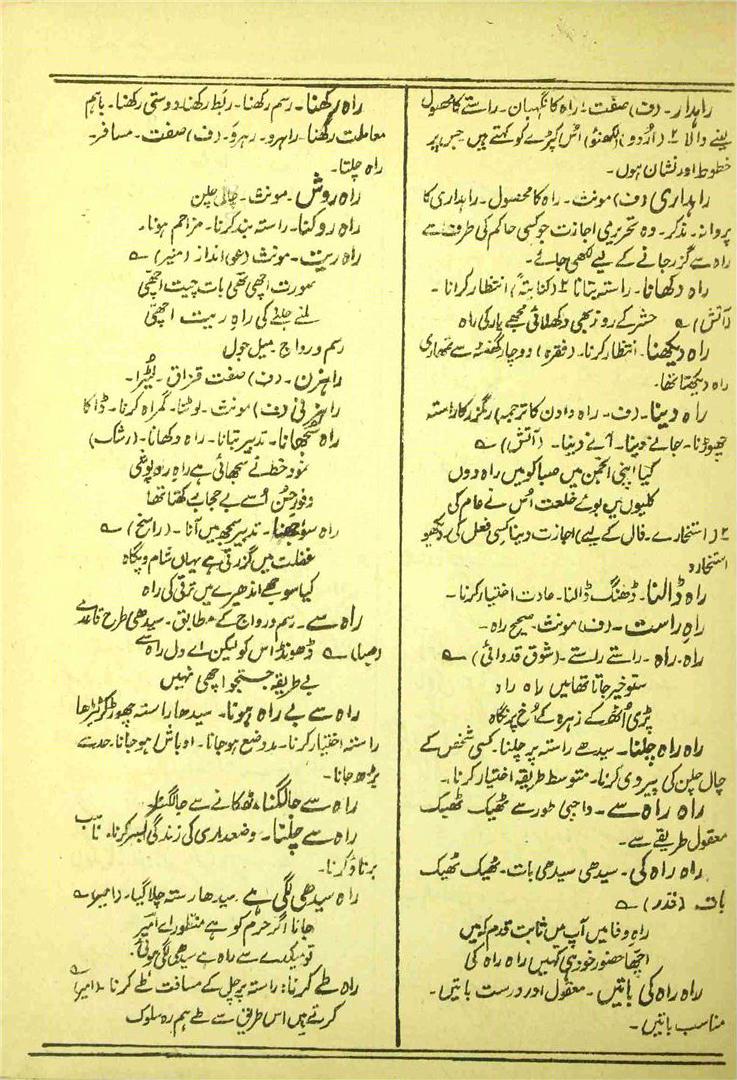 راہدار۔ (ف) صفت؛ راہ کا نگہبان۔ راستے کا محصول
لینے والا ۲۔ (اردو) (لکھنؤ) اُس کپڑے کو کہتے ہیں جس پر
خطوط اور نشان ہوں۔
راہداری (ف) مونث۔ راہ کا محصول۔ راہداری کا
پروانہ۔ مذکر۔ وہ تحریری اجازت جو کسی حاکم کی طرف سے
راہ سے گزر جانے کے لیے لکھی جائے۔
راہ دکھانا۔ راستہ بتانا ۲ (کنایتہً) انتظار کرانا۔
(آتش) ؎ حشر کے روز بھی دکھلائی مجھے یار کی راہ
راہ دیکھنا۔ انتظار کرنا۔ (فقرہ) دو چار گھنٹہ سے تمھاری
راہ دیکھتا تھا۔
راہ دینا۔ (ف۔ راہ دادن کا ترجمہ) رہگزر کا راستہ
چھوڑنا۔ جانے دینا۔ آنے دینا۔ (آتش) ؎
گیا اپنی انجمن میں صبا کو میں راہ دوں
کلیوں میں بوئے خلعت اس نے عام کی
۲ (استخارے۔ فال کے لیے) اجازت دینا کسی فعل کی۔ دیکھو
استخارہ
راہ ڈالنا۔ ڈھنگ ڈالنا۔ عادت اختیار کرنا۔
راہِ راست۔ (ف) مونث۔ صحیح راہ۔
راہ۔ راہ۔ راستے راستے۔ (شوق قدوائی) ؎
ستو خیر جاتا تھا میں راہ راہ
پڑی اُٹھ کے زہرہ کے رُخ پر نگاہ
راہ راہ چلنا۔ سیدھے راستہ پر چلنا۔ کسی شخص کے
چال چلن کی پیروی کرنا۔ متوسط طریقہ اختیار کرنا۔
راہ راہ سے۔ واجبی طور سے ٹھیک ٹھیک
معقول طریقے سے۔
راہ راہ کی۔ سیدھی سیدھی بات۔ ٹھیک ٹھیک
بات (قدر) ؎
راہِ وفا میں آپ میں ثابت قدم کہیں
اچھا حضور خود ہی کہیں راہ راہ کی
راہ راہ کی باتیں۔ معقول اور درست باتیں۔
مناسب باتیں۔
راہ رکھنا۔ رسم رکھنا۔ ربط رکھنا۔ دوستی رکھنا۔ باہم
معاملت رکھنا۔ راہرو۔ رہرو۔ (ف) صفت۔ مسافر۔
راہ چلتا۔
راہ روش۔ مونث۔ چالی چلن
راہ روکنا۔ راستہ بند کرنا۔ مزاحم ہونا۔
راہ ریت۔ مونث (عو) انداز (منیر) ؎
صورت اچھی تھی بات چیت اچھی
ملنے جلنے کی راہ ریت اچھی
رسم و رواج۔ میل جول
راہزن۔ (ف) صفت قزاق۔ لٹیرا۔
راہزنی (ف) مونث۔ لوٹنا۔ گمراہ کرنا۔ ڈاکا
راہ سجھانا۔ تدبیر بتانا۔ راہ دکھانا۔ (رشک)
نمود خط نے سجھائی ہے راہِ
وفورِ حسن اُسے بے حجاب رکھتا تھا
راہ سوجھنا۔ تدبیر سمجھ میں آنا۔ (راسخ) ؎
غفلت میں گزرتی ہے یہاں شام و پگاہ
کیا سوجھے اندھیرے میں ترقی کی راہ
راہ سے۔ رسم و رواج کے مطابق۔ سیدھی طرح قاعدے
(صبا) ؎ ڈھونڈ اس کو لیکن اے دل راہ سے
بے طریقہ جستجو اچھی نہیں
راہ سے بے راہ ہونا۔ سیدھا راستہ چھوڑ کر ٹیڑھا
راستہ اختیار کرنا۔ بدوضع ہو جانا۔ اوباش ہو جانا۔ حد سے
بڑھ جانا۔
راہ سے جا لگنا۔ ٹھکانے سے جا لگنا۔
راہ سے چلنا۔ وضعداری کی زندگی بسر کرنا۔
برتاؤ کرنا۔
راہ سیدھی لگی ہے۔ سیدھا رستہ چلا گیا۔ (امیر) ؎
جانا اگر حرم کو ہے منظور اے امیر
تو میکدے سے راہ ہے سیدھی لگی ہوئی
راہ طے کرنا: راستہ پر چل کے مسافت طے کرنا۔ (امیر) ؎
کرتے ہیں اس طریق سے طے ہم رہِ سلوک